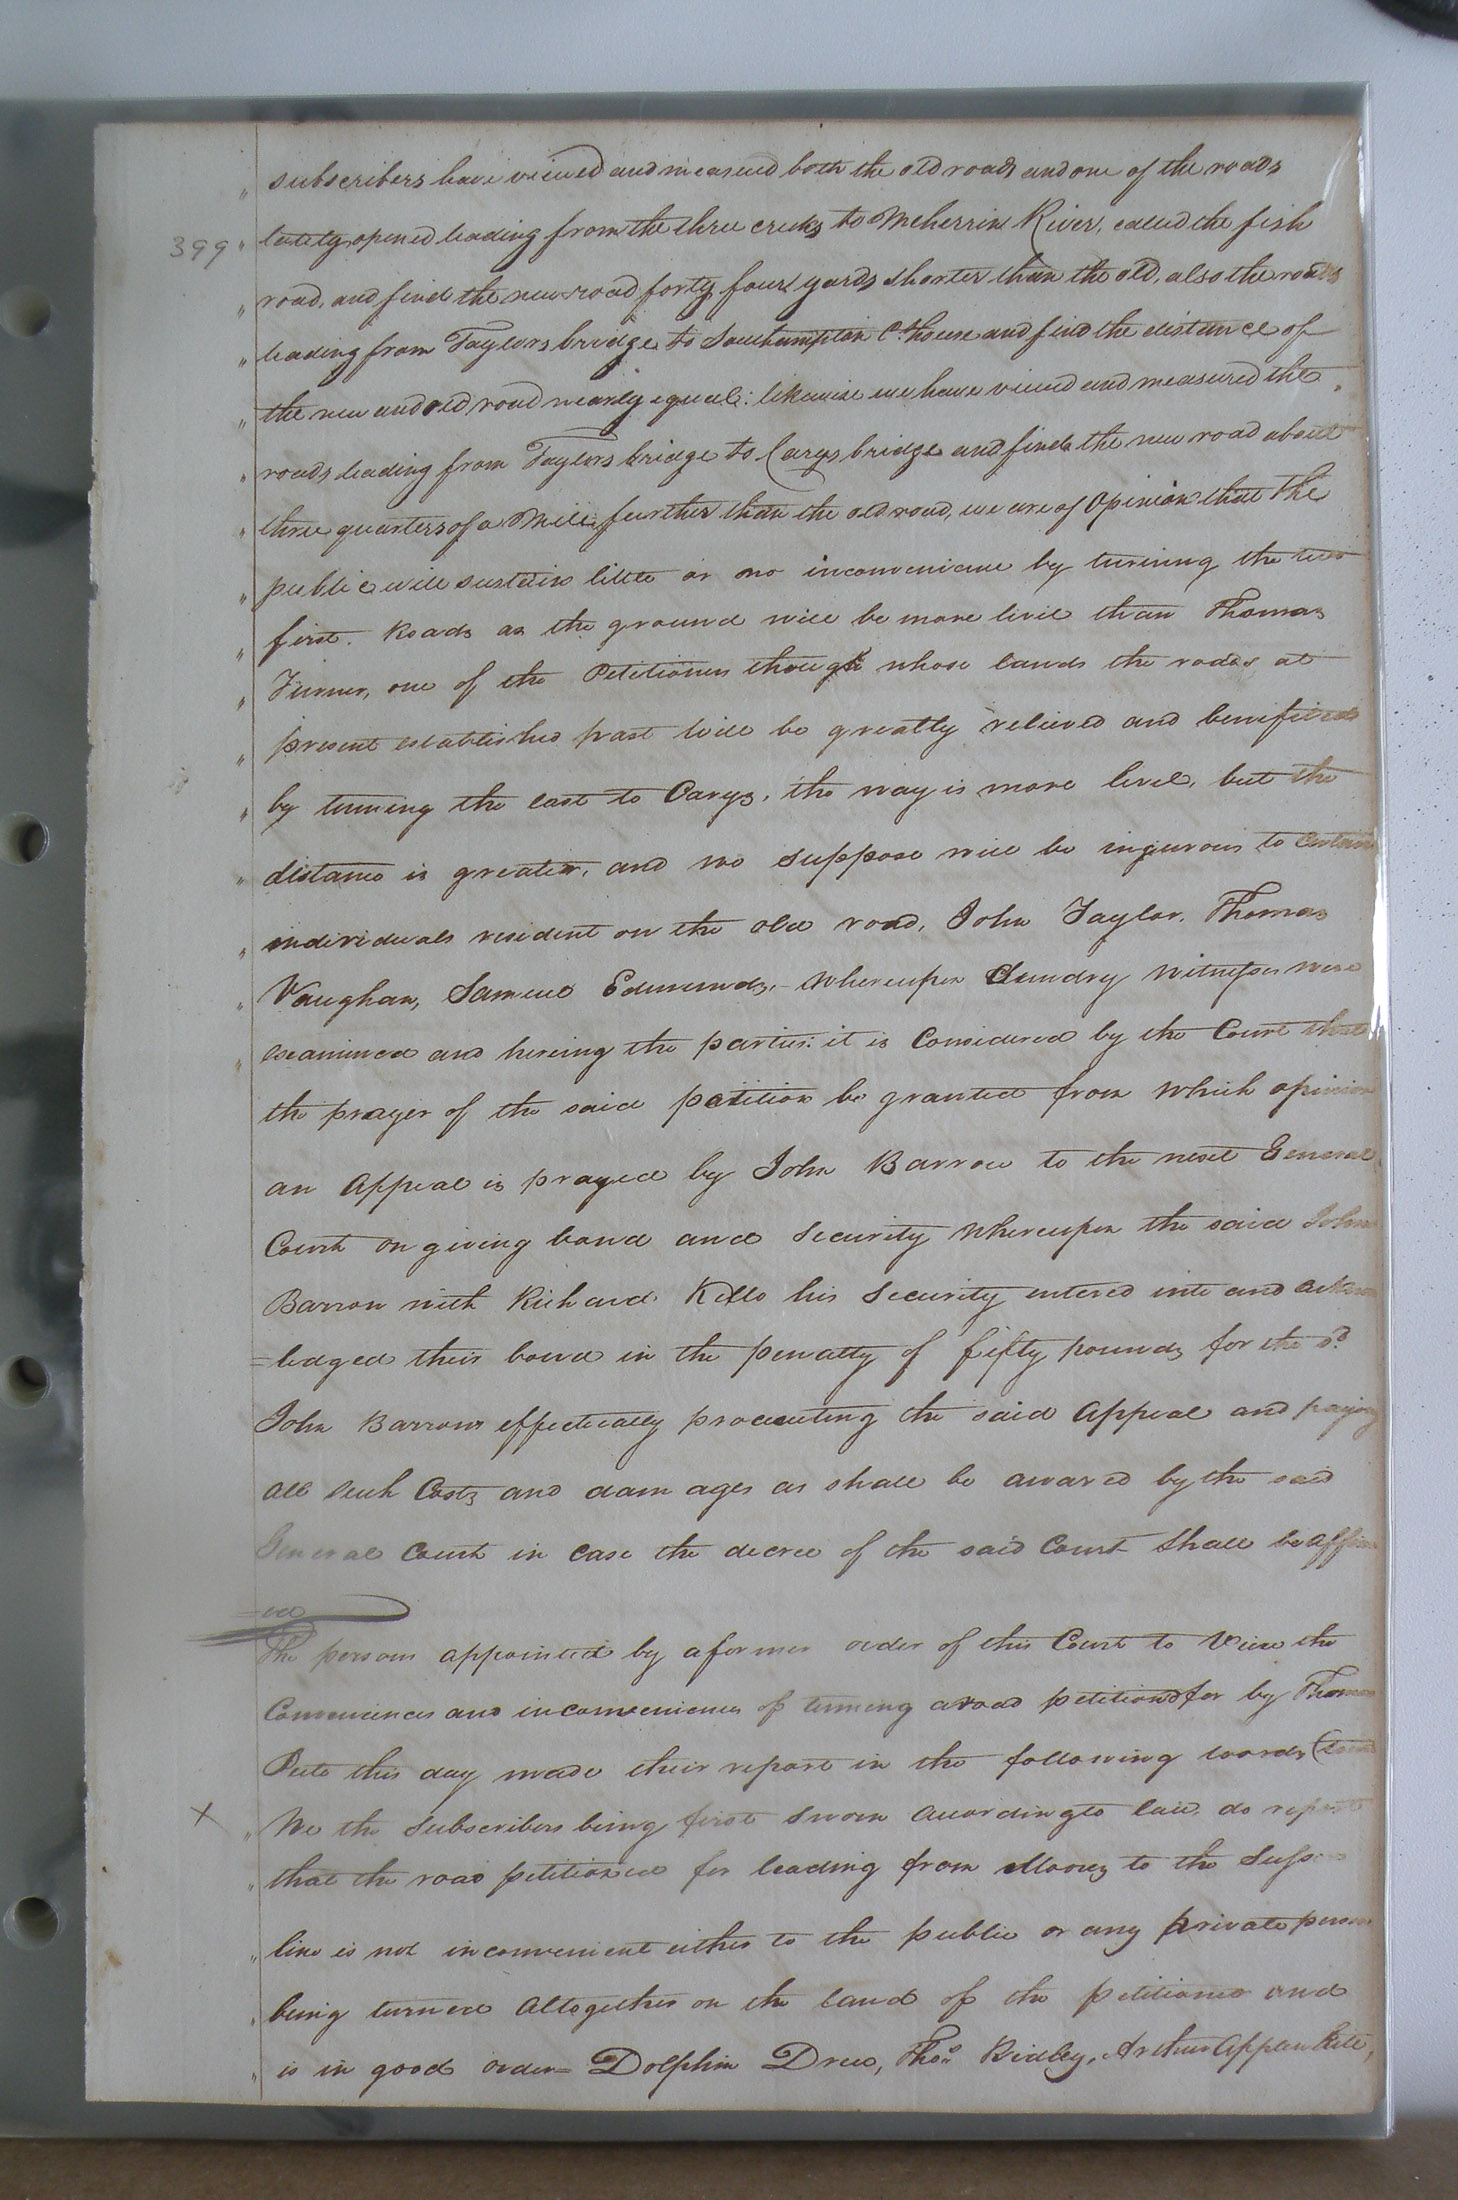 " subscribers have viewed and measured both the old roads and one of the roads
399 " lately opened leading from the three creeks to Meherrin River, called the fish
" road, and find the new road forty four yards shorter than the old, also the roads
" leading from Taylors bridge to Southampton Ct. house and find the distance of
" the new and old road nearly equal: likewise we have viewed and measured the
" roads leading from Taylors bridge to Carys bridge and find the new road about
" three quarters of a Mile further than the old road, we are of Opinion that the
" public will sustain little or no inconvenience by turning the two
" first. Roads as the ground will be more livil than Thomas
" Turner, one of the Petitioners though whose lands the rodes at
" present established past will be greatly relieved and benefited
" by turning the east to Carys, the way is more level, but the
" distance is greater, and we suppose will be ingurous to certain
" individuals resident on the old road, John Taylor. Thomas
" Vaughan, Samuel Edmunds,- whereupon Sundry witnesses were
" examined and hereing the parties: it is Considered by the Court that
the prayer of the said petition be granted from which opinion
an Appeal is prayed by John Barrow to the next General
Court on giving bond and Security whereupon the said John
Barrow with Richard Kello his Security entered into and ackno
=ledged their bond in the penalty of fifty pounds for the sd.
John Barrows effectually procecuting the said Appeal and paying
All such Costs and damages as shall be awared by the said
General Court in case the decree of the said Court Shall be affirm
=ed
The persons appointed by a former order of this Court to View the
Conveniences and inconveniences of turning a road petitioned for by Thomas
Pete this day made their report in the following words
X " We the Subscribers being first sworn according to law, do report
" that the road petitioned for leading from Moores to the
" line is not inconvenient either to the public or any private person
" being turned Altogether on the land of the petitioner and
" is in good order= Dolphin Drew, Thos. Ridley, Arthur Applewhite,